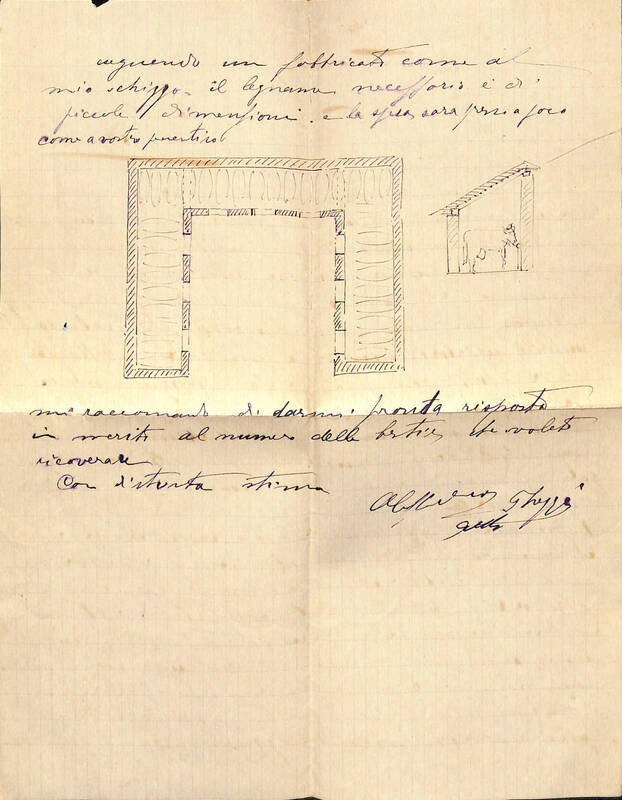 eseguendo un fabbricato come al
mio schizzo. il legname necessario è di
piccole dimensioni. e la spesa sara preso a poco
come a vostro preventivo
mi raccomando di darmi pronta risposta
in merito al numero delle bestie che volete
ricoverare
Con distinta stima